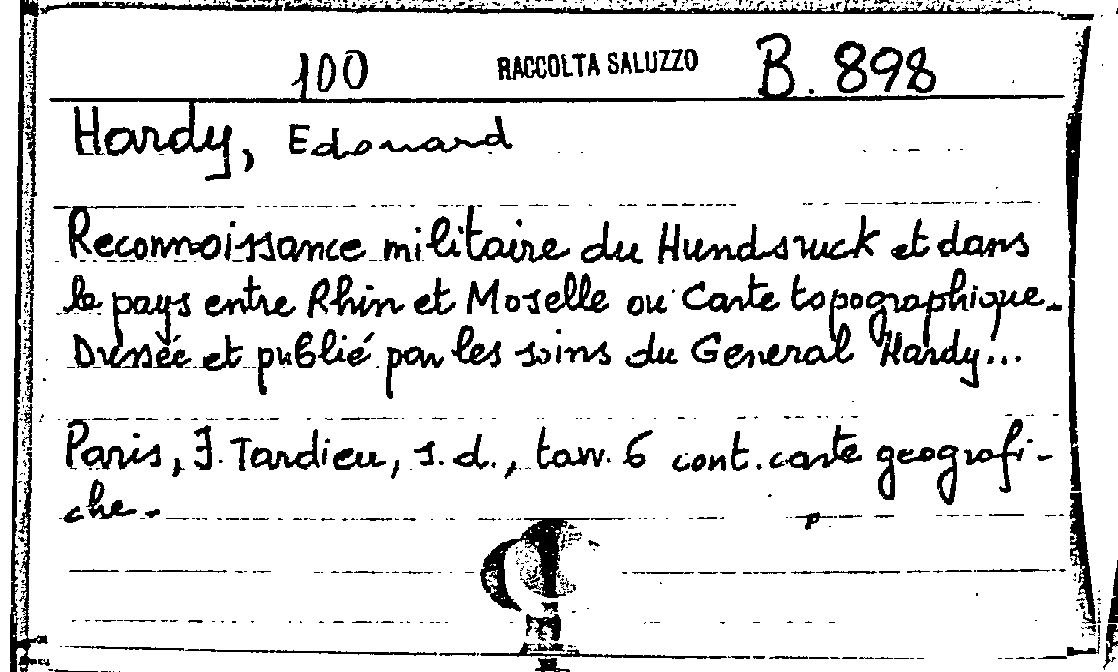 100 RACCOLTA SALUZZO B. 898
Hardy, Edouard
Reconnoissance militaire du Hundsruck et dans
le pays entre Rhin et Moselle ou Carte topographique.
Dressée et publié par les soins du General Hardy...
Paris, J. Tardieu, s.d., tavv. 6 cont. carte geografi-
che.